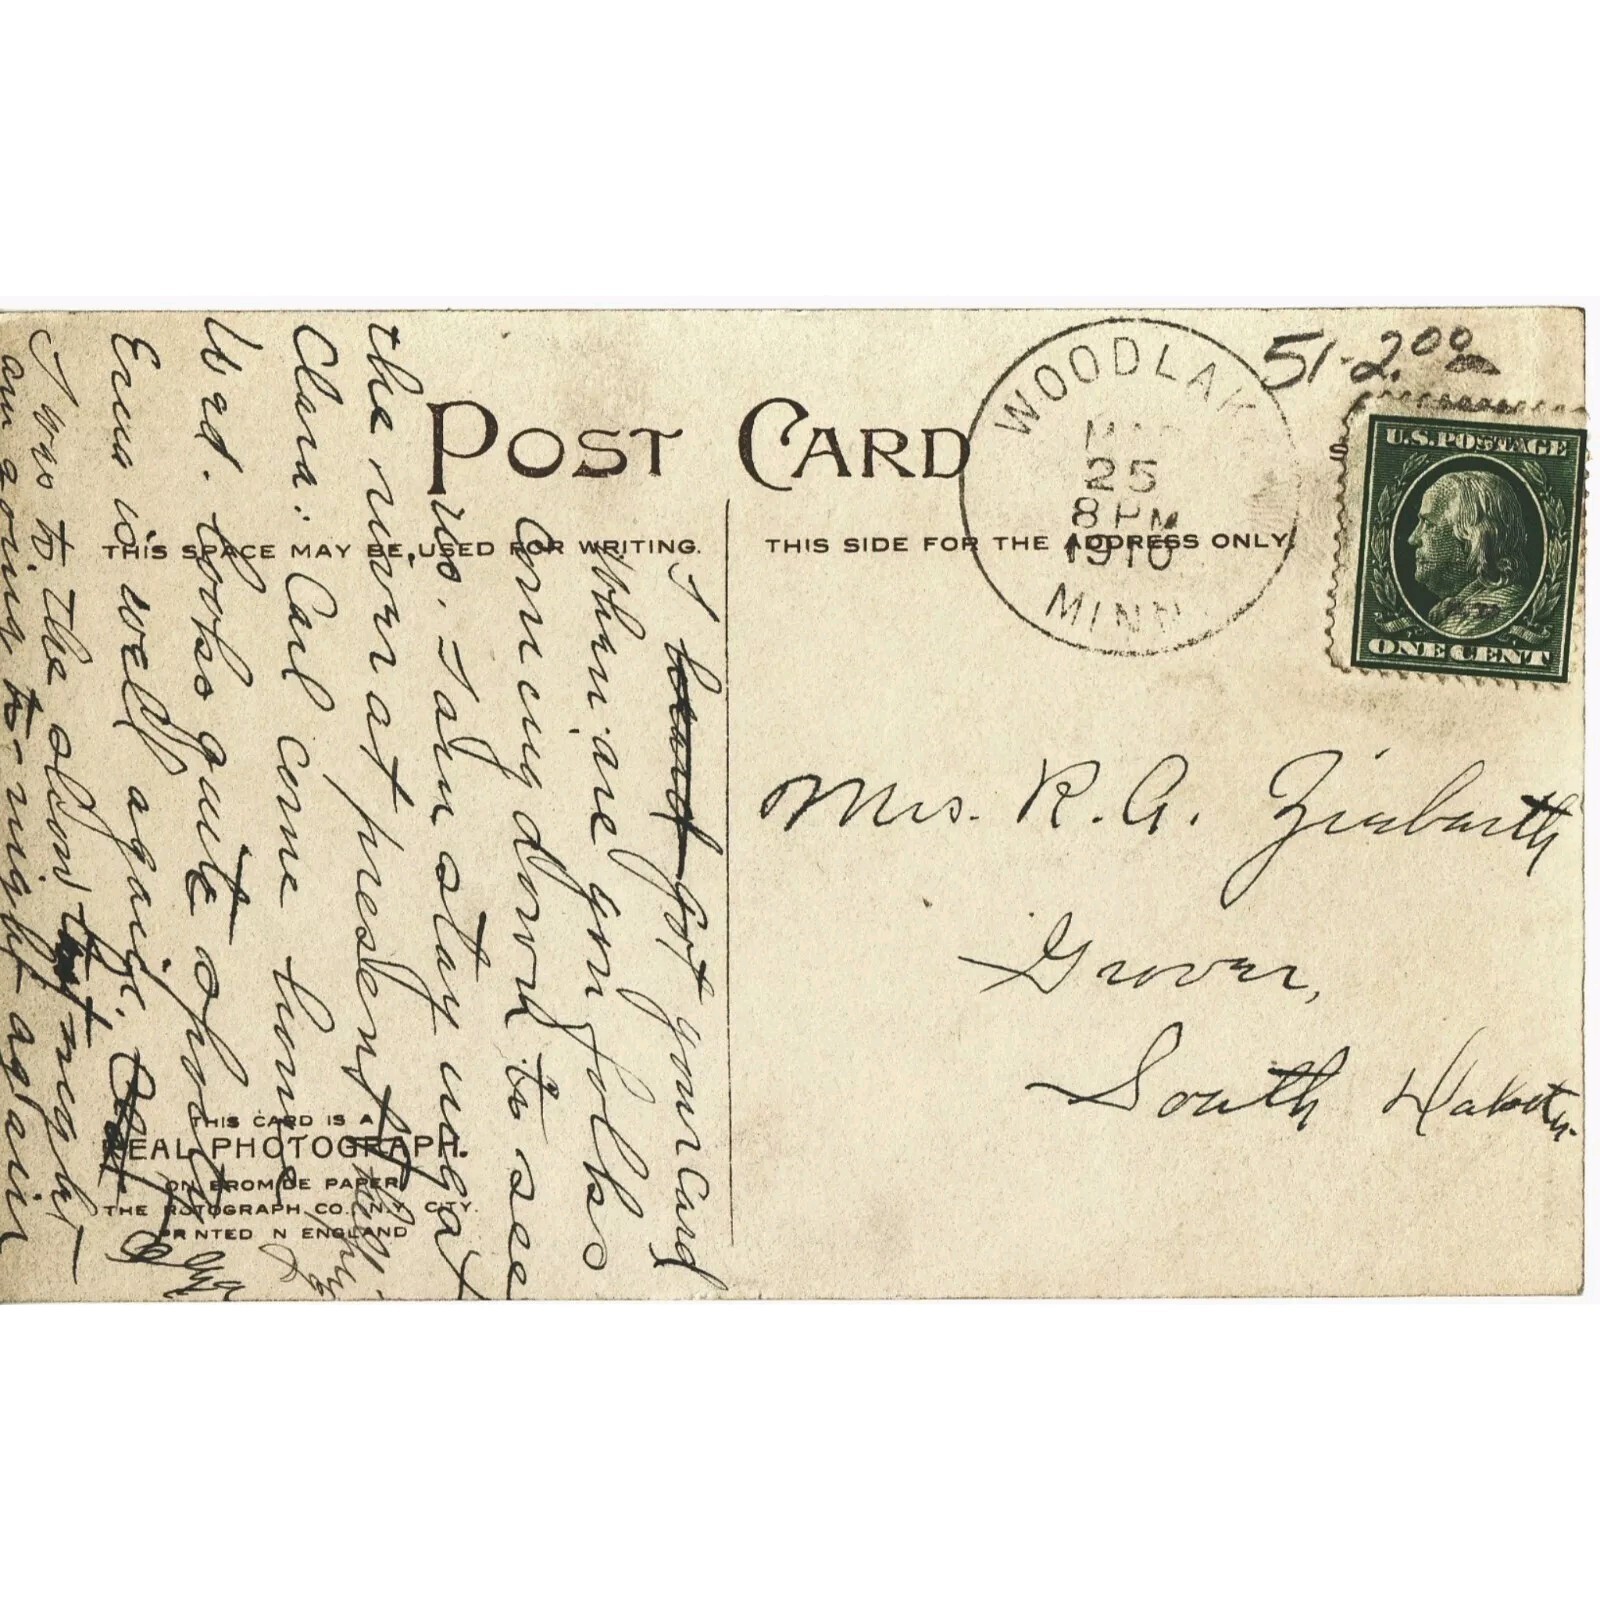 POST CARD
THIS SPACE MAY BE USED FOR WRITING.
THIS SIDE FOR THE ADDRESS ONLY.
WOODLAK
25
8 PM
1910
MINN.
51-2.00
U.S. POSTAGE
ONE CENT
Mrs. R. A.
Grover,
South Dakota.
I heard Got your Card
When are you folks
Coming down to see
us. I am staying at
the river at present
Clara: Carl come home
Wed. looks quite
Erna is well again.
I was to the show last night
am going to-night again
THIS CARD IS A
REAL PHOTOGRAPH.
ON BROMIDE PAPER
THE ROTOGRAPH CO. N.Y. CITY.
PRINTED IN ENGLAND